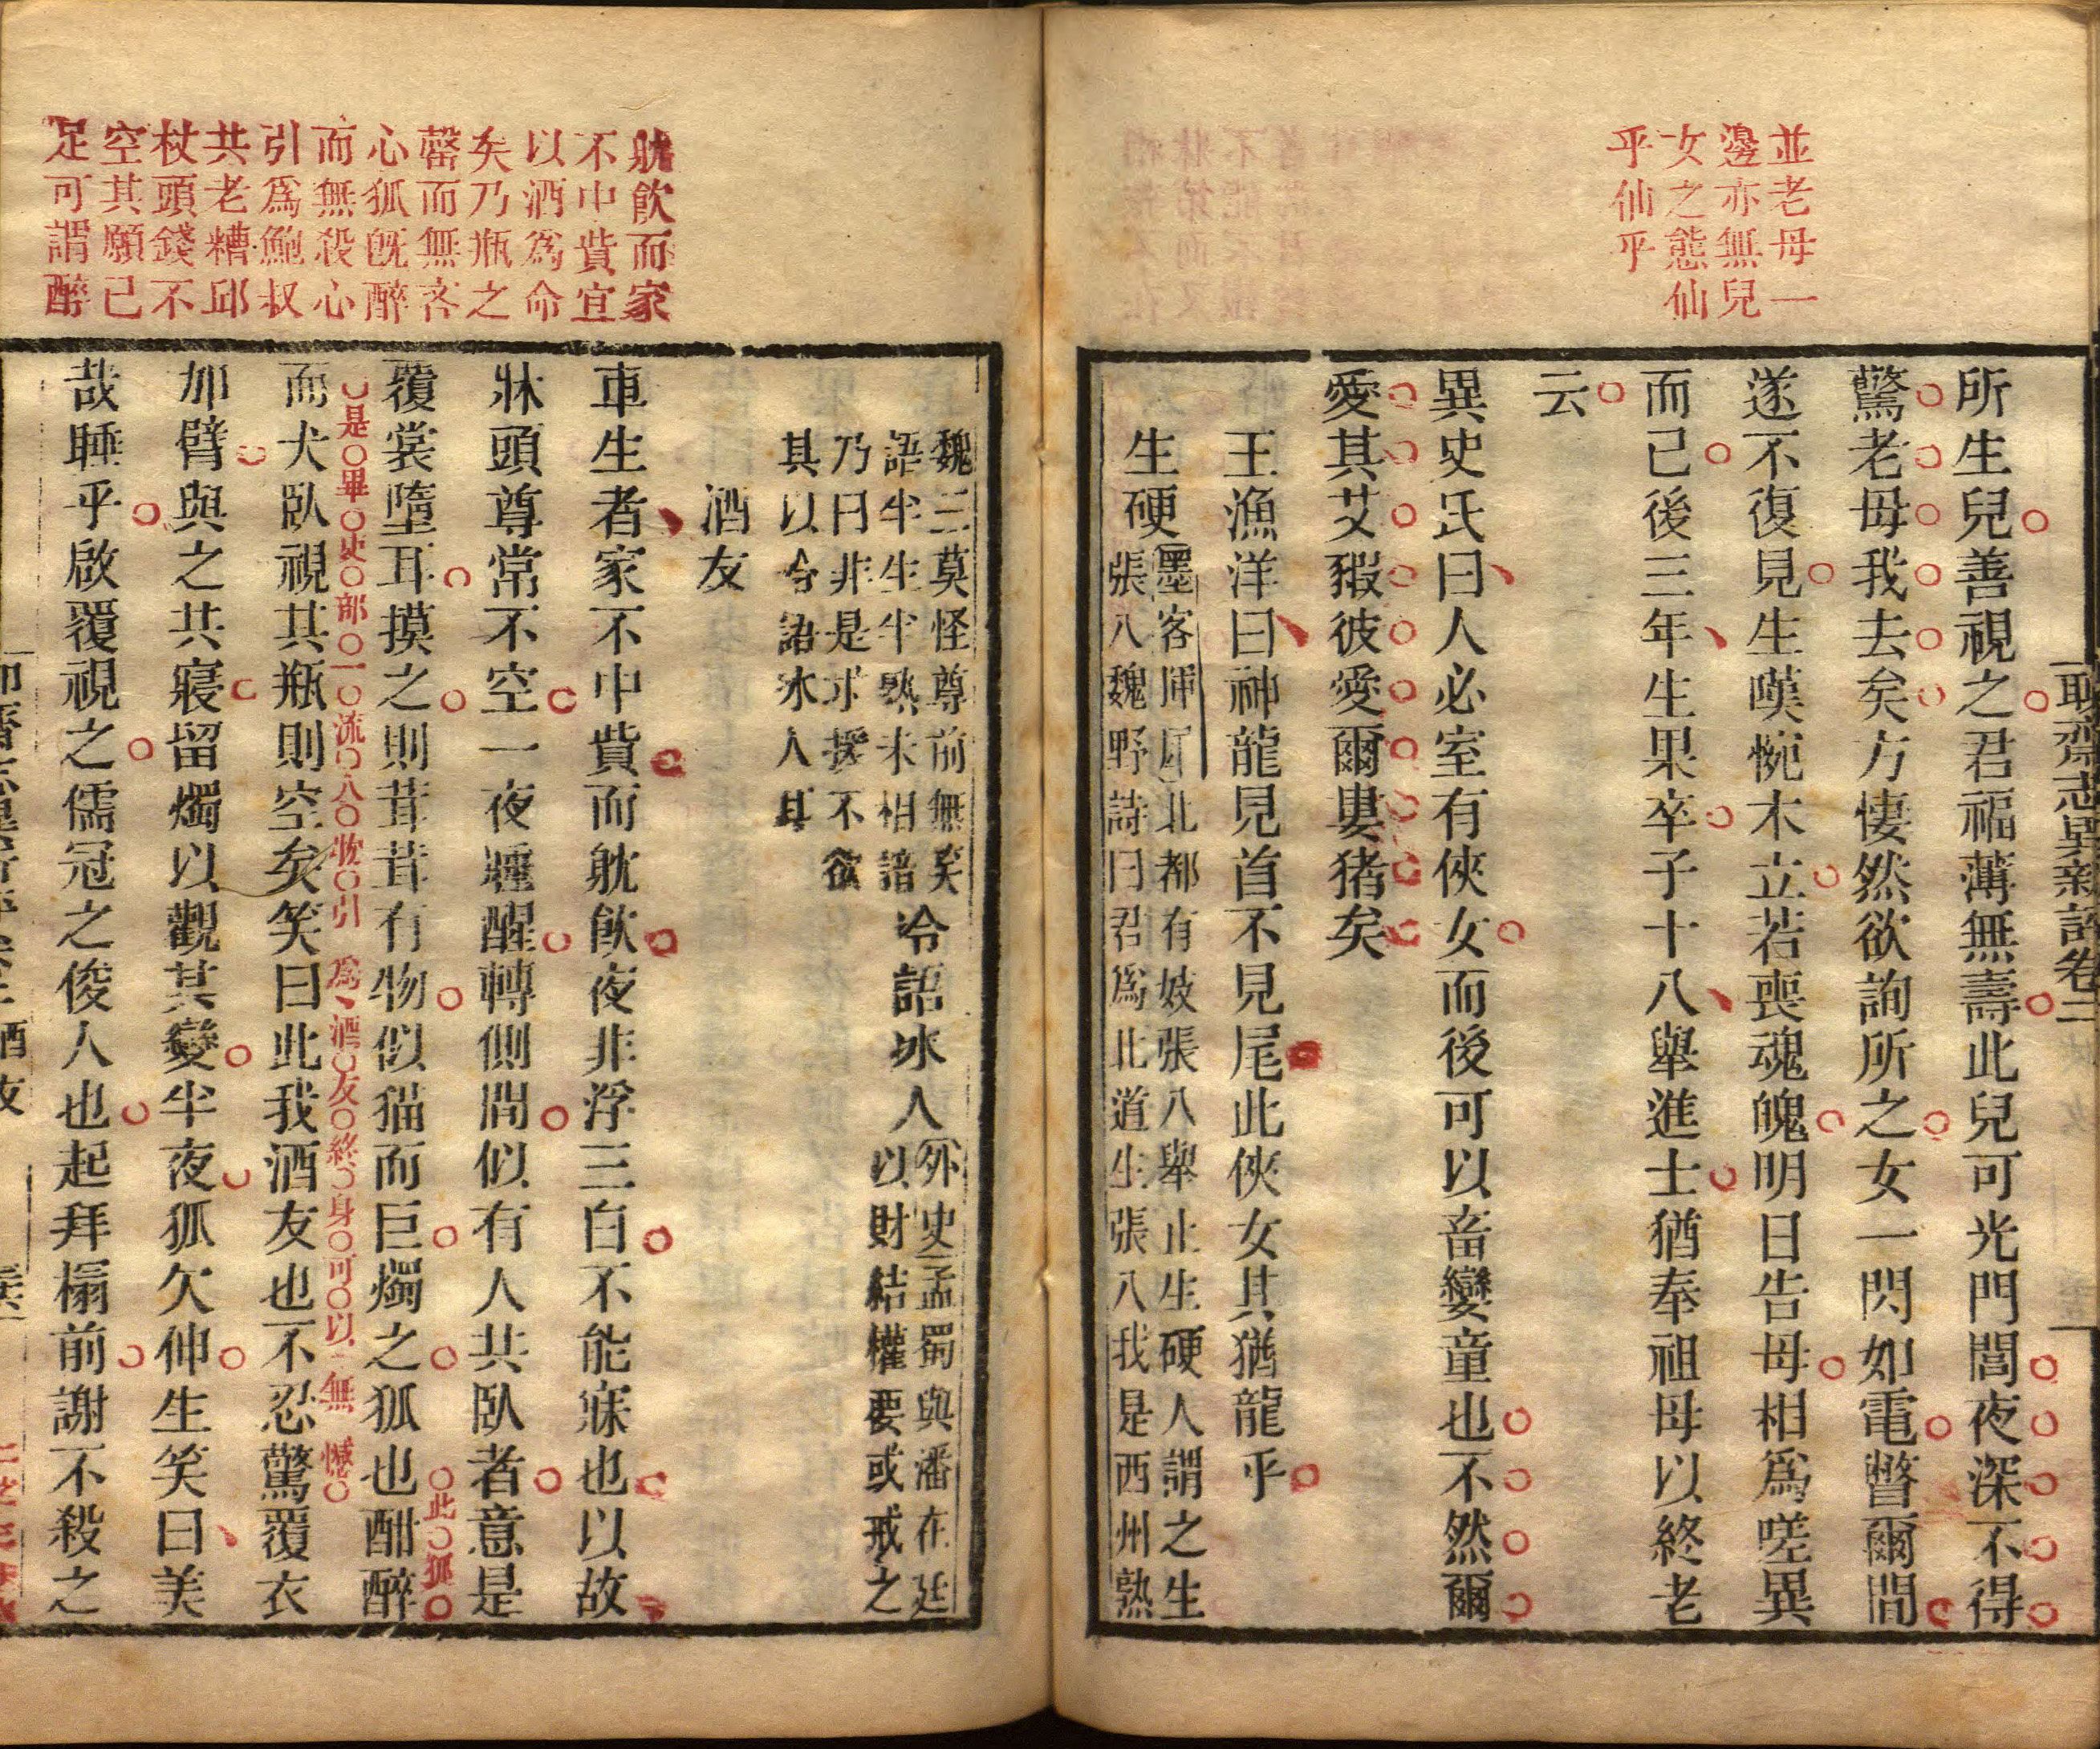 並老母一
邊亦無兒
女之態仙
乎仙乎
聊齋志異新評卷二
所生兒善視之君福薄無壽此兒可光門閭夜深不得
驚老母我去矣方悽然欲詢所之女一閃如電瞥爾間
遂不復見生嘆惋木立若喪魂魄明日告母相爲嗟異
而已後三年生果卒子十八舉進士猶奉祖母以終老
云
異史氏曰人必室有俠女而後可以畜孌童也不然爾
愛其艾豭彼愛爾婁猪矣
王漁洋曰神龍見首不見尾此俠女其猶龍乎
生硬
墨客揮犀北都有妓張八舉止生硬人謂之生
張八魏野詩曰君爲北道生張八我是西州熟
魏三莫怪尊前無笑
語半生半熟未相諳
冷語冰人
外史孟蜀與潘在廷
以財結權要或戒之
乃曰非是求援不欲
其以冷語冰人耳
躭飲而家
不中貲宜
以酒爲命
矣乃瓶之
罄而無吝
心狐旣醉
而無殺心
引爲鮑叔
共老糟邱
杖頭錢不
空其願已
足可謂醉
酒友
車生者家不中貲而躭飲夜非浮三白不能寐也以故
牀頭尊常不空一夜睡醒轉側間似有人共臥者意是
覆裳墮耳摸之則茸茸有物似猫而巨燭之狐也酣醉
此狐
是畢吏部一流人物引爲酒友終身可以無憾
而犬臥視其瓶則空矣笑曰此我酒友也不忍驚覆衣
加臂與之共寢留燭以觀其變半夜狐欠伸生笑曰美
哉睡乎啟覆視之儒冠之俊人也起拜榻前謝不殺之
酒友